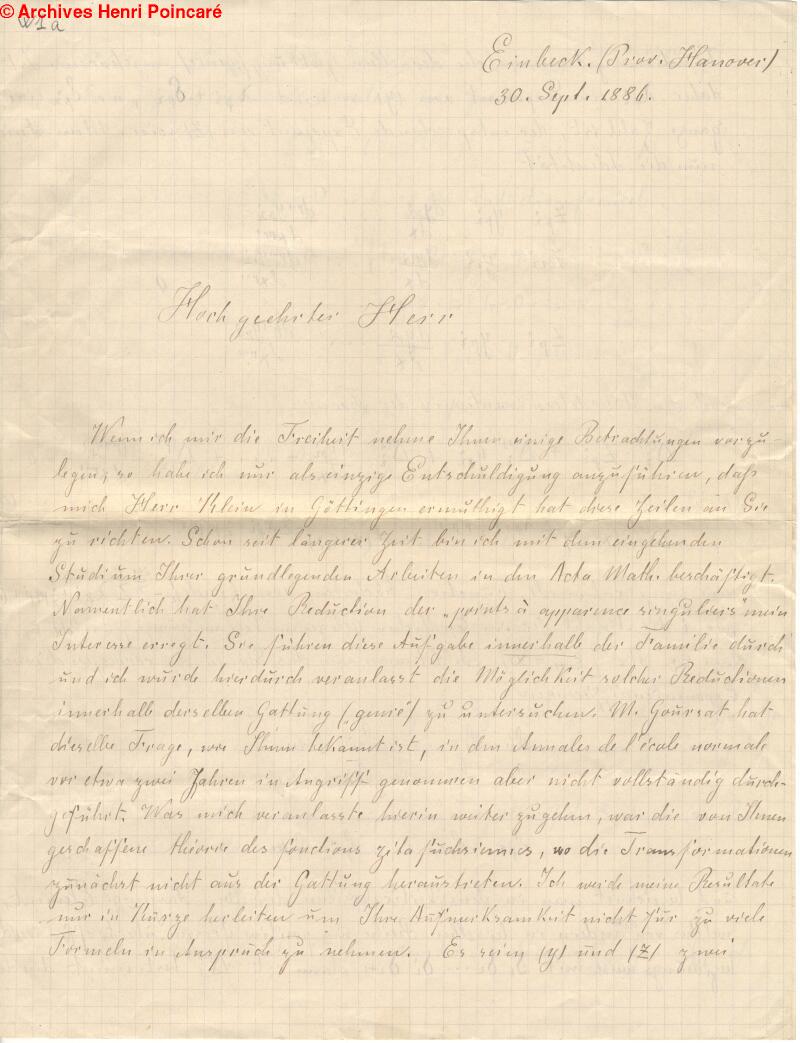 © Archives Henri Poincaré
Einbeck. (Prov. Hanover)
30. Sept. 1886.
Hochgeehrter Herr
Wenn ich mir die Freiheit nehme Ihnen einige Betrachtungen vorzu-
legen, so habe ich nur als einzige Entschuldigung anzuführen, daß
mich Herr Klein in Göttingen ermuthigt hat diese Zeilen an Sie
zu richten. Schon seit längerer Zeit bin ich mit dem eingehenden
Studium Ihrer grundlegenden Arbeiten in den Acta Math. beschäftigt.
Namentlich hat Ihre Reduction der „points à apparence singuliers" mein
Interesse erregt. Sie führen diese Aufgabe innerhalb der Familie durch
und ich wurde hierdurch veranlasst die Möglichkeit solcher Reductionen
innerhalb derselben Gattung („genre") zu untersuchen. M. Goursat hat
dieselbe Frage, wie Ihnen bekannt ist, in den Annales de l'école normale
vor etwa zwei Jahren in Angriff genommen aber nicht vollständig durch-
geführt. Was mich veranlasste hierin weiter zugehn, war die von Ihnen
geschaffene théorie des fonctions zétafuchsiennes, wo die Transformationen
zunächst nicht aus der Gattung heraustreten. Ich werde meine Resultate
nur in Kürze herleiten um Ihre Aufmerksamkeit nicht für zu viele
Formeln in Anspruch zu nehmen. Es seien (y) und (z) zwei